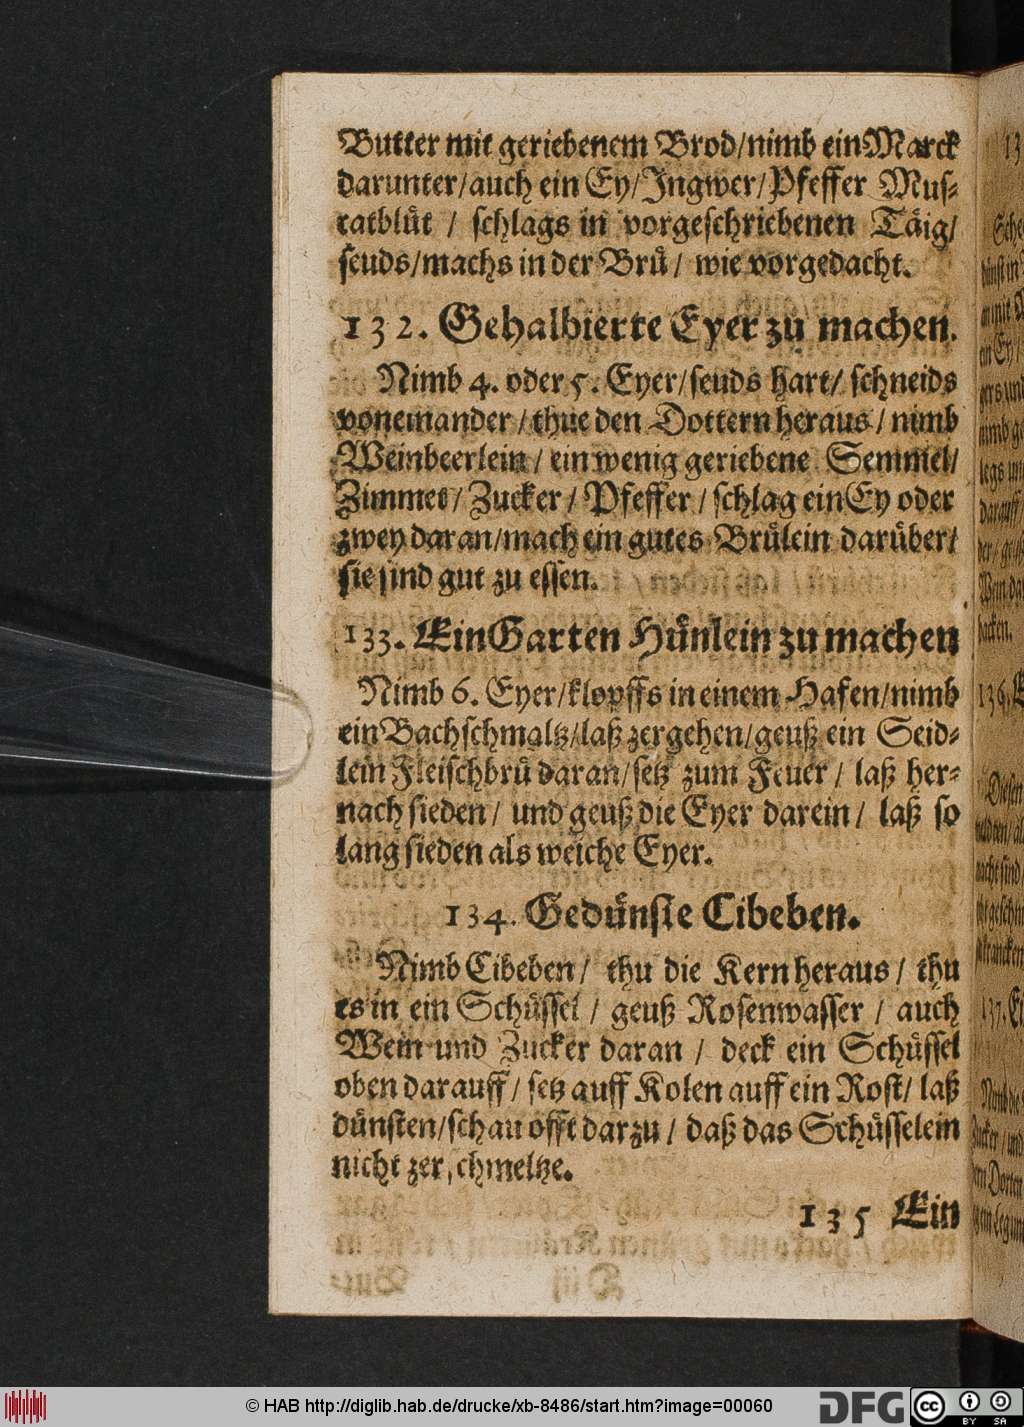 Butter mit geriebenem Brod/nimb ein Marck
darunter/auch ein Ey/Ingwer/Pfeffer Mus-
catblüt / schlags in vorgeschriebenen Täig/
seuds/machs in der Brü / wie vorgedacht.
132. Gehalbierte Eyer zu machen.
Nimb 4. oder 5. Eyer/seuds hart/ schneids
voneinander / thue den Dottern heraus / nimb
Weinbeerlein / ein wenig geriebene Semmel/
Zimmet/ Zucker / Pfeffer / schlag ein Ey oder
zwey daran/mach ein gutes Brülein darüber/
sie sind gut zu essen.
133. Ein Garten Hünlein zu machen
Nimb 6. Eyer/klopffs in einem Hafen/nimb
ein Bachschmaltz/laß zergehen/geuß ein Seid-
lein Fleischbrü daran/setz zum Feuer / laß her-
nach sieden / und geuß die Eyer darein / laß so
lang sieden als weiche Eyer.
134. Gedünste Cibeben.
Nimb Cibeben / thu die Kern heraus / thu
es in ein Schüssel / geuß Rosenwasser / auch
Wein und Zucker daran / deck ein Schüssel
oben darauff / setz auff Kolen auff ein Rost/ laß
dünsten/schau offt darzu / daß das Schüsselein
nicht zerschmeltze.
135 Ein
© HAB http://diglib.hab.de/drucke/xb-8486/start.htm?image=00060
DFG
cc
BY SA